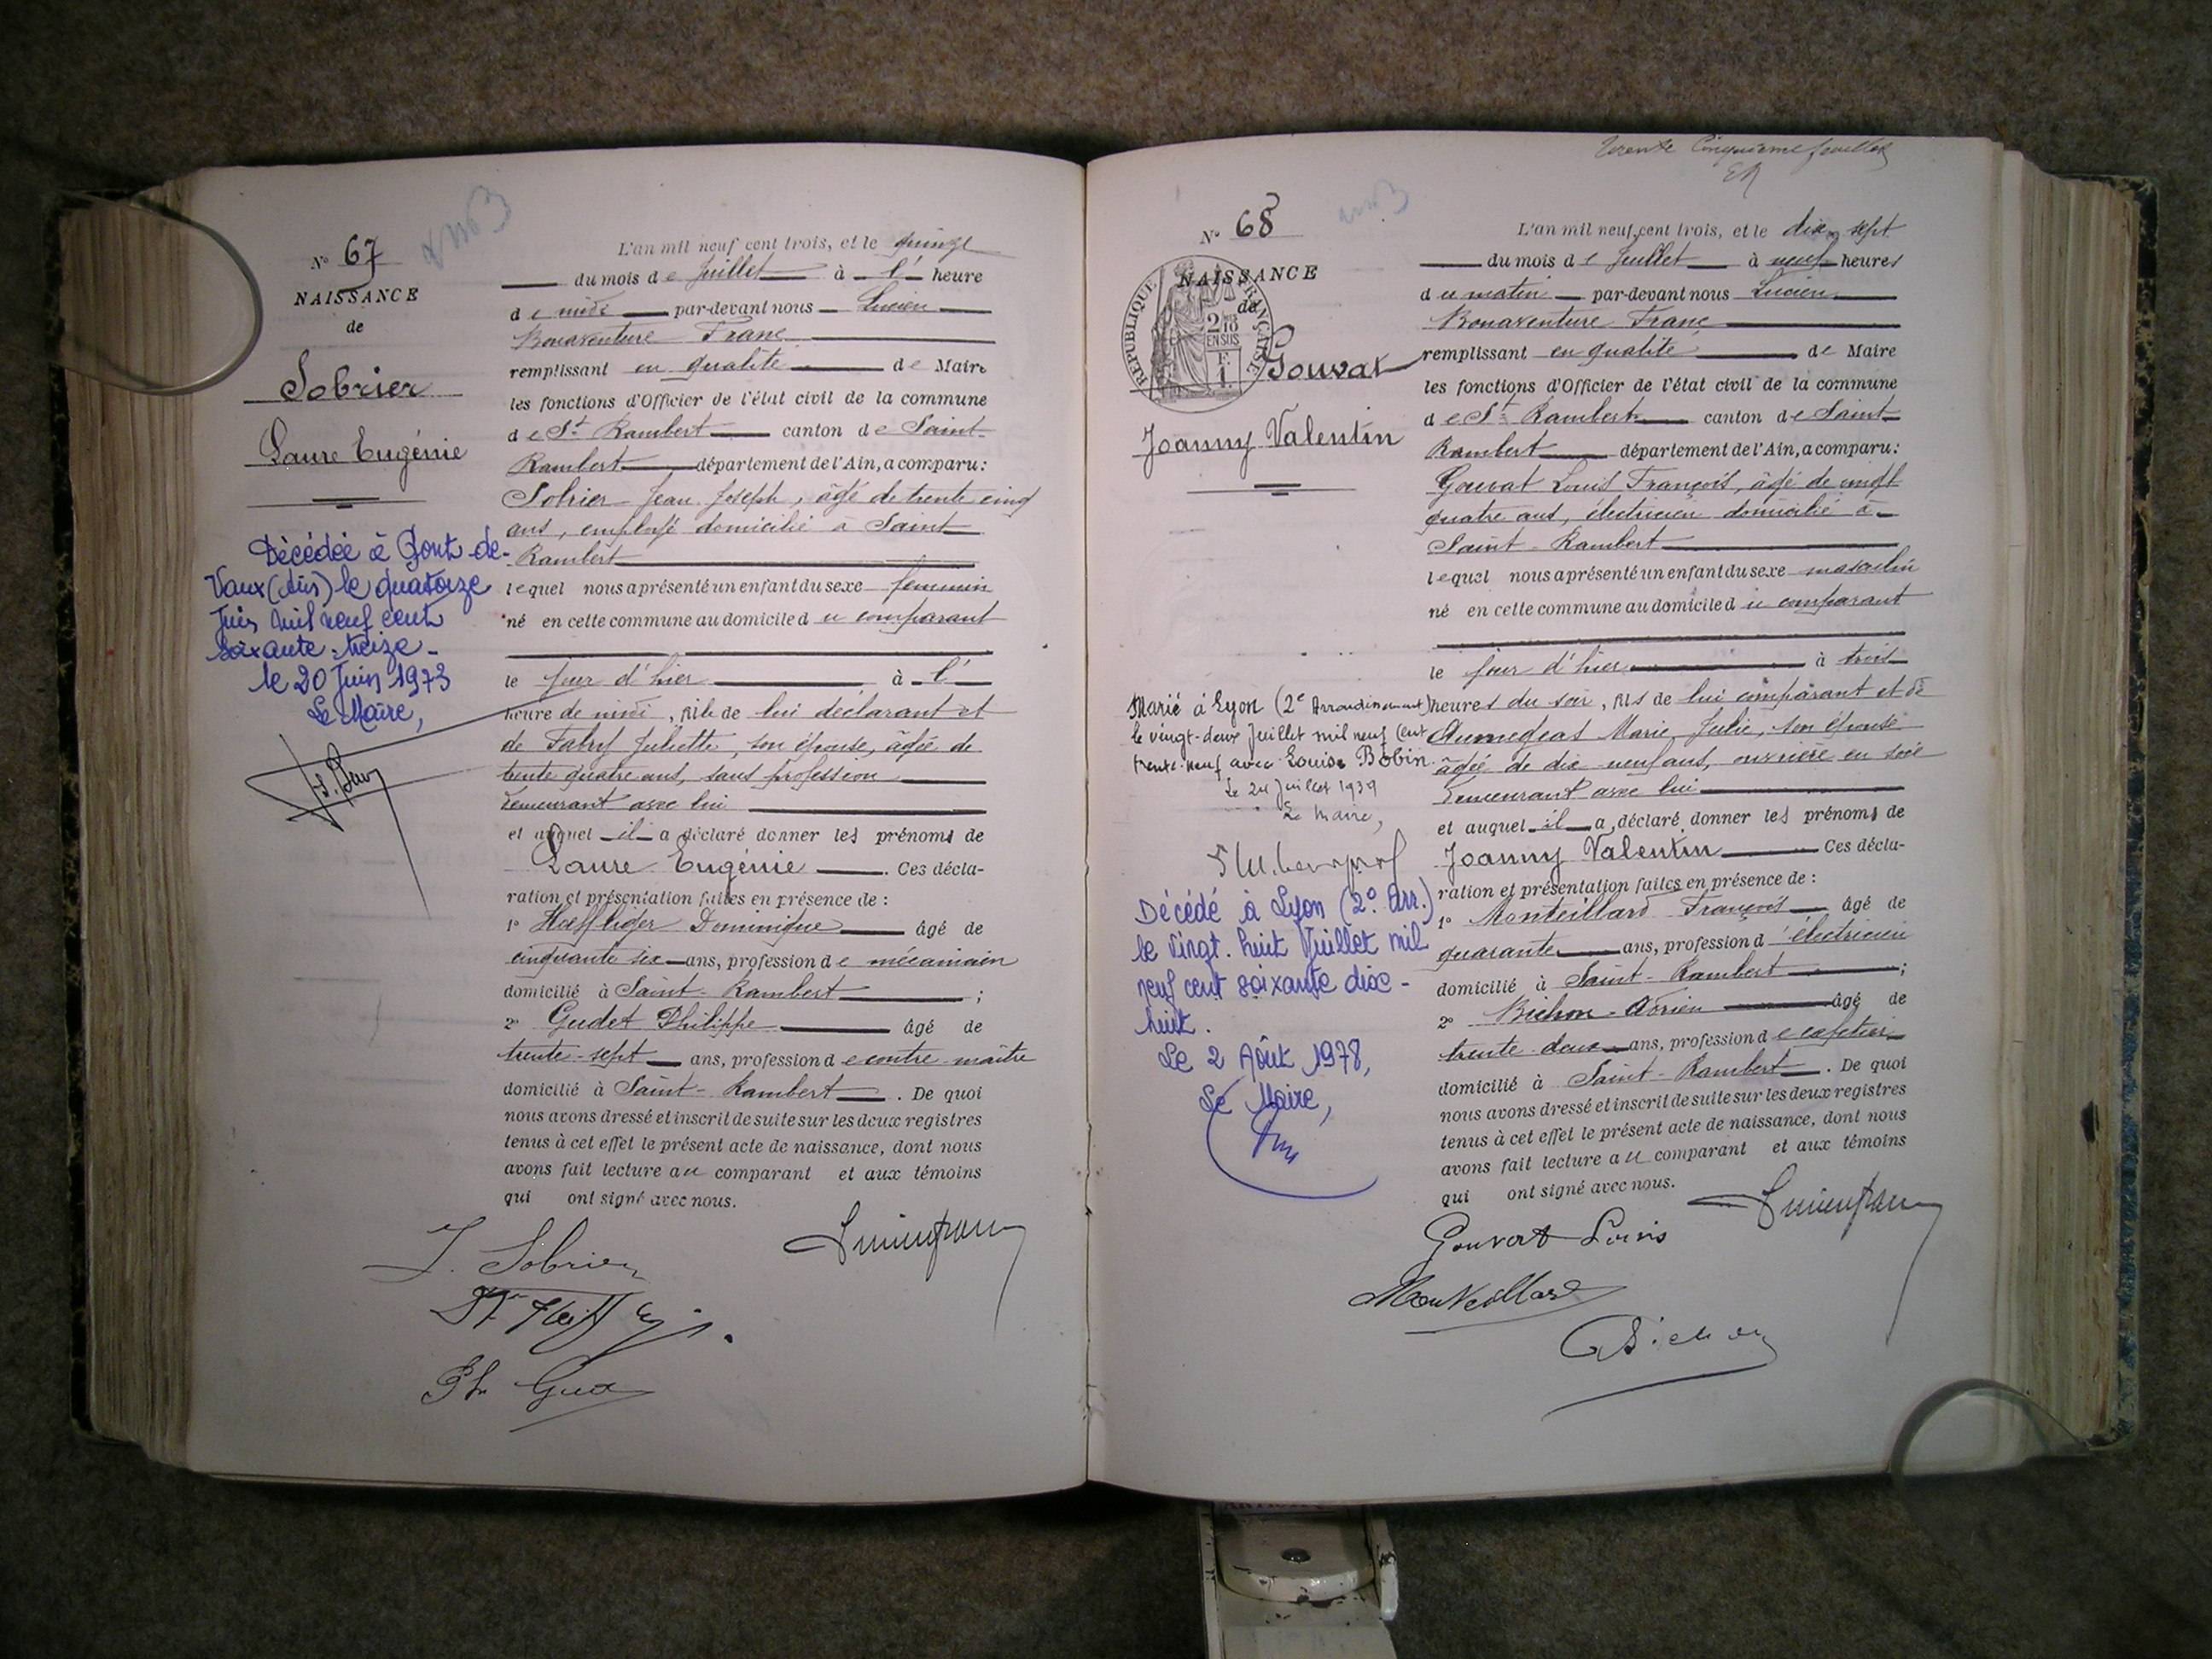 N° 67
NAISSANCE
de
Sobrier
Laure Eugénie
Décédée à Pont-de-
Vaux (Ain) le quatorze
Juin mil neuf cent
soixante-treize-
le 20 Juin 1973
Le Maire,
L'an mil neuf cent trois, et le quinze
du mois de Juillet à l' heure
de midi par-devant nous Lucien
Bonaventure Franc
remplissant en qualité de Maire
les fonctions d'Officier de l'état civil de la commune
de St Rambert canton de Saint-
Rambert département de l'Ain, a comparu:
Sobrier Jean Joseph, âgé de trente cinq
ans, employé domicilié à Saint
Rambert
lequel nous a présenté un enfant du sexe féminin
né en cette commune au domicile du comparant
le jour d'hier à l'
heure de midi, fille de lui déclarant et
de Fabry Juliette, son épouse, âgée de
trente quatre ans, sans profession
demeurant avec lui
et auquel il a déclaré donner les prénoms de
Laure Eugénie. Ces décla-
ration et présentation faites en présence de :
1° Dominique âgé de
cinquante six ans, profession de mécanicien
domicilié à Saint-Rambert ;
2° Gudet Philippe âgé de
trente-sept ans, profession de contre-maître
domicilié à Saint-Rambert. De quoi
nous avons dressé et inscrit de suite sur les deux registres
tenus à cet effet le présent acte de naissance, dont nous
avons fait lecture au comparant et aux témoins
qui ont signé avec nous.
J. Sobrier
Ph Gudet
Trente Cinquième feuillet
N° 68
NAISSANCE
de
RÉPUBLIQUE FRANÇAISE
2/10 EN SUS
F.
1.
Gouvat
Joanny Valentin
Marié à Lyon (2e Arrondissement)
le vingt-deux Juillet mil neuf cent
trente-neuf avec Louise Bobin.
Le 24 Juillet 1939
Le Maire,
Décédé à Lyon (2° Arr.)
le vingt-huit Juillet mil
neuf cent soixante dix-
huit.
Le 2 Août 1978,
Le Maire,
L'an mil neuf cent trois, et le dix sept
du mois de Juillet à neuf heures
du matin par-devant nous Lucien
Bonaventure Franc
remplissant en qualité de Maire
les fonctions d'Officier de l'état civil de la commune
de St Rambert canton de Saint-
Rambert département de l'Ain, a comparu:
Gouvat Louis François, âgé de vingt
quatre ans, électricien domicilié à
Saint-Rambert
lequel nous a présenté un enfant du sexe masculin
né en cette commune au domicile du comparant
le jour d'hier à trois
heures du soir, fils de lui comparant et de
Marie Julie, son épouse
âgée de dix-neuf ans, ouvrière en soie
demeurant avec lui
et auquel il a déclaré donner les prénoms de
Joanny Valentin Ces décla-
ration et présentation faites en présence de :
1° Monteillard François âgé de
quarante ans, profession d'électricien
domicilié à Saint-Rambert ;
2° Bichon Adrien âgé de
trente deux ans, profession de cafetier
domicilié à Saint-Rambert. De quoi
nous avons dressé et inscrit de suite sur les deux registres
tenus à cet effet le présent acte de naissance, dont nous
avons fait lecture au comparant et aux témoins
qui ont signé avec nous.
Gouvat Louis
Monteillard
Bichon